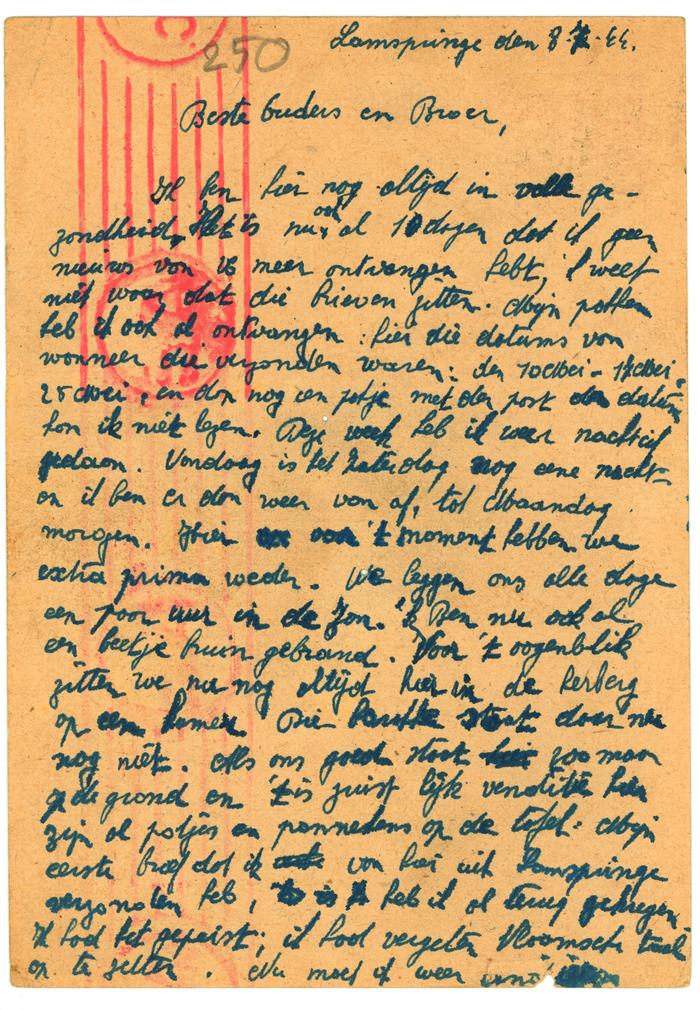 250
Lamspringe den 8-7-44.
Beste Ouders en Broer,
Ik ben hier nog altijd in volle ge-
zondheid, Het is nu ook al 10 dagen dat ik geen
nieuws van U meer ontvangen hebt, 'k weet
niet waar dat die brieven zitten. Mijn potten
heb ik ook al ontvangen: hier die datums van
wanneer die verzonden waren: den 10 Mei - 14 Mei -
25 Mei, en dan nog een potje met der post de datum
kon ik niet lezen. Deze week heb ik weer nachtsh
gedaan. Vandaag is het Zaterdag nog eene nacht
en ik ben er dan weer van af, tot Maandag
morgen. Hier van 't moment hebben we
extra prima weder. We leggen ons alle dage
een paar uur in de Zon. 'k Ben nu ook al
een beetje bruin gebrand. Voor 't oogenblik
zitten we nu nog altijd hier in de herberg
op een kamer. Die staat daar nu
nog niet. Als ons goed staat zoo maar
op de grond en 't is juist lijk venditie hier
zijn al potjes en pannekens op de tafel. Mijn
eerste brief dat ik van hier uit Lamspringe
verzonden heb, heb ik al terug gekregen
Ik had het gepeist; ik had vergeten Vlaamsche taal
op te zetten. Nu moet ik weer